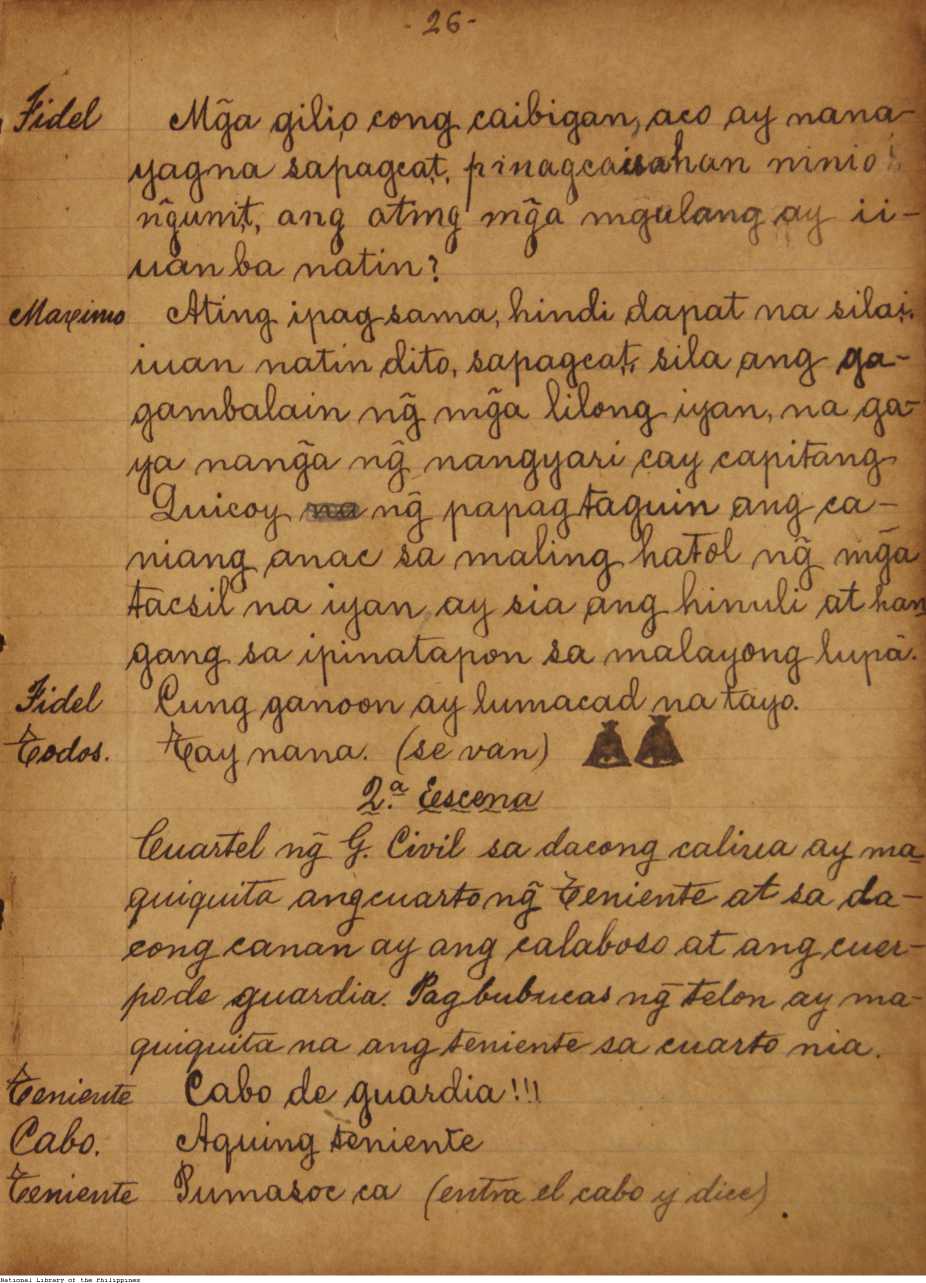 -26-
Fidel Mg̃a gilio cong caibigan, aco ay nana-
yag na sapagcat, pinagcaisahan ninio
ng̃unit, ang ating mg̃a mgulang ay ii-
uan ba natin?
Maximo Ating ipag sama, hindi dapat na silai,
iuan natin dito, sapagcat, sila ang ga-
gambalain ng̃ mg̃a lilong iyan, na ga-
ya nang̃a ng̃ nangyari cay capitang
Quicoy ng̃ papagtaguin ang ca-
niang anac sa maling hatol ng̃ mg̃a
tacsil na iyan ay sia ang hinuli at han
gang sa ipinatapon sa malayong lupá.
Fidel Cung ganoon ay lumacad na tayo.
Todos. Tay nana. (se van)
2.ª Escena
Cuartel ng̃ G. Civil sa dacong caliua ay ma-
quiquita ang cuarto ng̃ Teniente at sa da-
cong canan ay ang calaboso at ang cuer-
po de guardia. Pagbubucas ng̃ telon ay ma-
quiquita na ang teniente sa cuarto nia.
Teniente Cabo de guardia!!!
Cabo. Aquing teniente
Teniente Pumasoc ca (entra el cabo y dice)
National Library of the Philippines